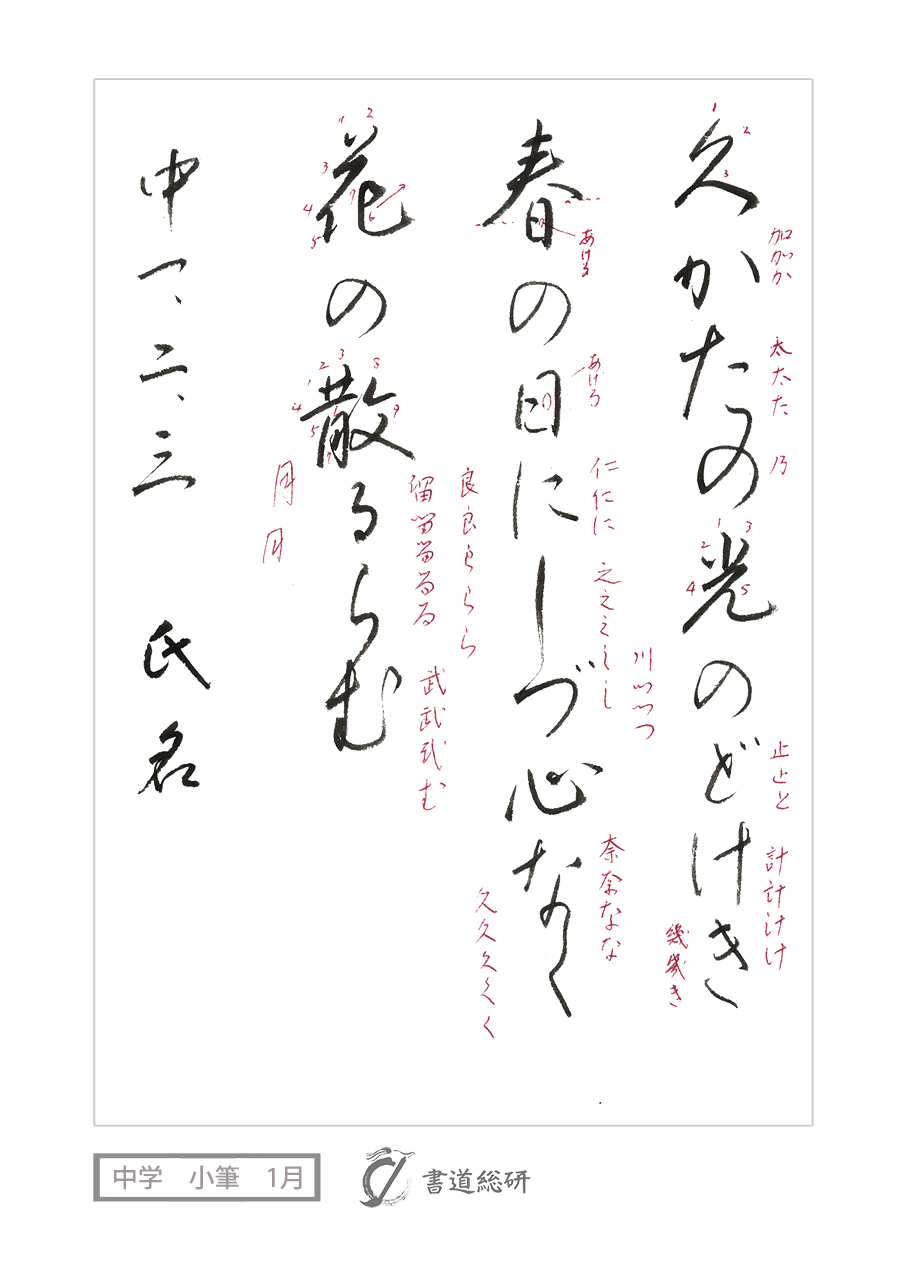 久かたの光のどけき
加加か
太太た
乃
止止と
計計けけ
幾幾き
春の日にしづ心なく
あける
あける
仁仁に
之之之しし
川つつつ
奈奈なな
久久久くく
花の散るらむ
良良らららら
留留留るる
武武武む
月月
中一、二、三 氏名
中学 小筆 1月
書道総研